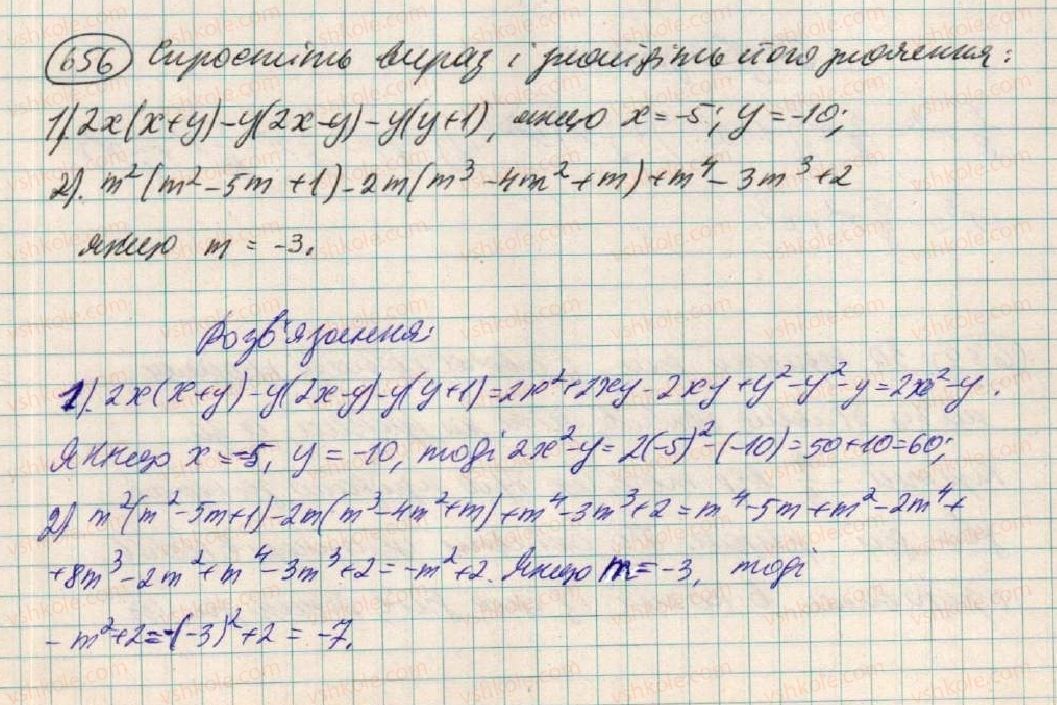 656 Спростіть вираз і знайдіть його значення:
1) 2x(x+y)-y(2x-y)-y(y+1), якщо x=-5; y=-10;
2). m²(m²-5m+1)-2m(m³-4m²+m)+m⁴-3m³+2
якщо m = -3.
Розв'язання:
1). 2x(x+y)-y(2x-y)-y(y+1)=2x²+2xy-2xy+y²-y²-y=2x²-y.
Якщо x=-5, y=-10, тоді 2x²-y=2(-5)²-(-10)=50+10=60;
2) m²(m²-5m+1)-2m(m³-4m²+m)+m⁴-3m³+2=m⁴-5m+m²-2m⁴+
+8m³-2m²+m⁴-3m³+2=-m²+2. Якщо m=-3, тоді
-m²+2=-(-3)²+2=-7.